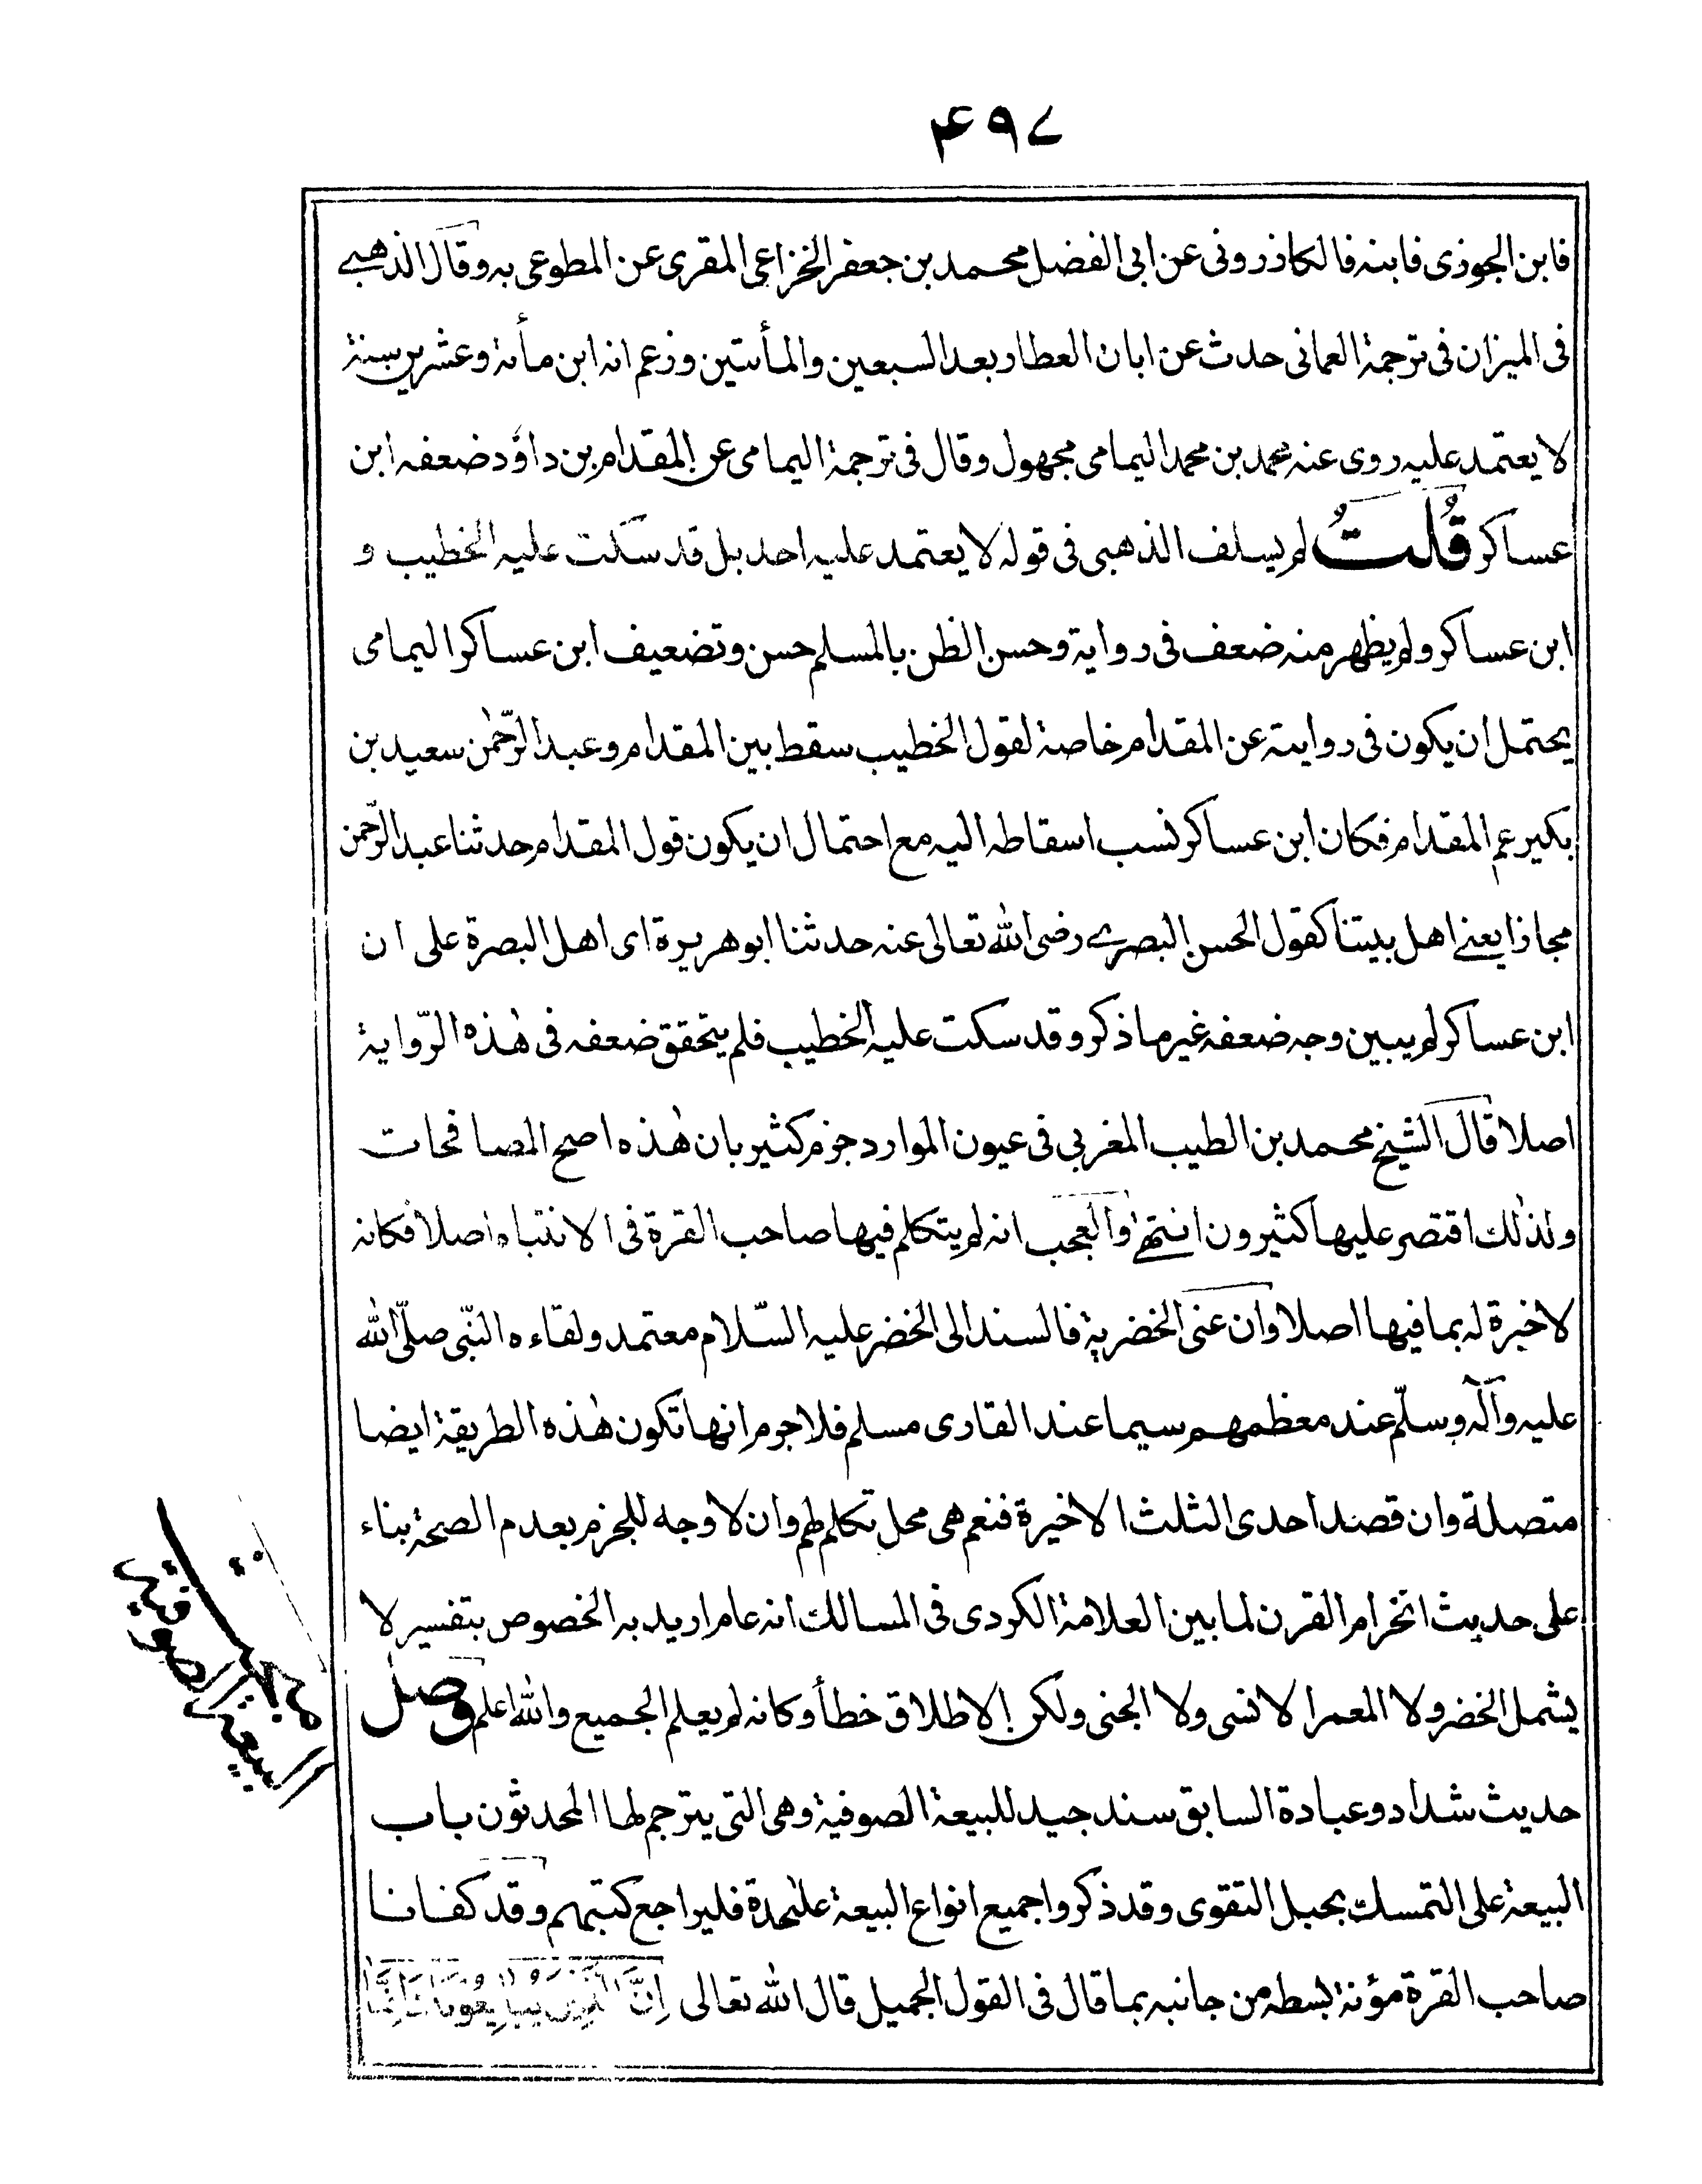 ۴۹۷
فابن الجوزی فابنه فالکازرونی عن ابی الفضل محمد بن جعفر الخزاعی المقری عن المطوعی به وقال الذهبے
فی المیزان فی ترجمة العمانی حدث عن ابان العطار بعد السبعین والمأتین وزعم انه ابن مأئة وعشرین سنة
لا یعتمد علیه روی عنه محمد بن محمد الیمامی مجهول وقال فی ترجمة الیمامی عن المقدام بن داوٗد ضعفه ابن
عساکر قُلتُ لم یسلف الذهبی فی قوله لا یعتمد علیه احد بل قد سکت علیه الخطیب و
ابن عساکر ولم یظهر منه ضعف فی روایة وحسن الظن بالمسلم حسن وتضعیف ابن عساکر الیمامی
یحتمل ان یکون فی روایته عن المقدام خاصة لقول الخطیب سقط بین المقدام وعبد الرّحمٰن سعید بن
بکیر عم المقدام فکان ابن عساکر نسب اسقاطه الیه مع احتمال ان یکون قول المقدام حدثنا عبد الرّحمن
مجازا یعنے اهل بیتنا کقول الحسن البصرے رضی الله تعالی عنه حدثنا ابوهریرة ای اهل البصرة علی ان
ابن عساکر لم یبین وجه ضعفه غیر ما ذکر وقد سکت علیه الخطیب فلم یتحقق ضعفه فی هٰذه الرّوایة
اصلا قال الشیخ محمد بن الطیب المغربی فی عیون الموارد جزم کثیر بان هٰذه اصح المصافحات
ولذٰلك اقتصر علیها کثیرون انتهٰی والعجب انه لم یتکلم فیها صاحب القرة فی الانتباه اصلا فکانه
لا خبرة له بما فیها اصلا وان عنی الخضریة فالسند الی الخضر علیه السّلام معتمد ولقاءه النّبی صلّی الله
علیه وآله وسلّم عند معظمهم سیما عند القاری مسلم فلا جرم انها تکون هٰذه الطریقة ایضا
متصلة وان قصد احدی الثلث الاخیرة فنعم هی محل تکلم لهم وان لا وجه للجزم بعدم الصحة بناء
علی حدیث انخرام القرن لما بین العلامة الکردی فی المسالك انه عام ارید به الخصوص بتفسیر لا
یشمل الخضر ولا المعمر الانسی ولا الجنی ولکن الاطلاق خطأ وکانه لم یعلم الجمیع والله اعلم وصل
حدیث شداد وعبادة السابق سند جید للبیعة الصوفیة وهی التی یترجم لها المحدثون باب
البیعة علی التمسك بحبل التقوی وقد ذکروا جمیع انواع البیعة علٰیحدة فلیراجع کتبهم وقد کفانا
صاحب القرة مؤنة بسطه من جانبه بما قال فی القول الجمیل قال الله تعالی اِنَّ الَّذِیْنَ یُبَایِعُوْنَكَ اِنَّمَا
مبحث
البیعة الصوفیة